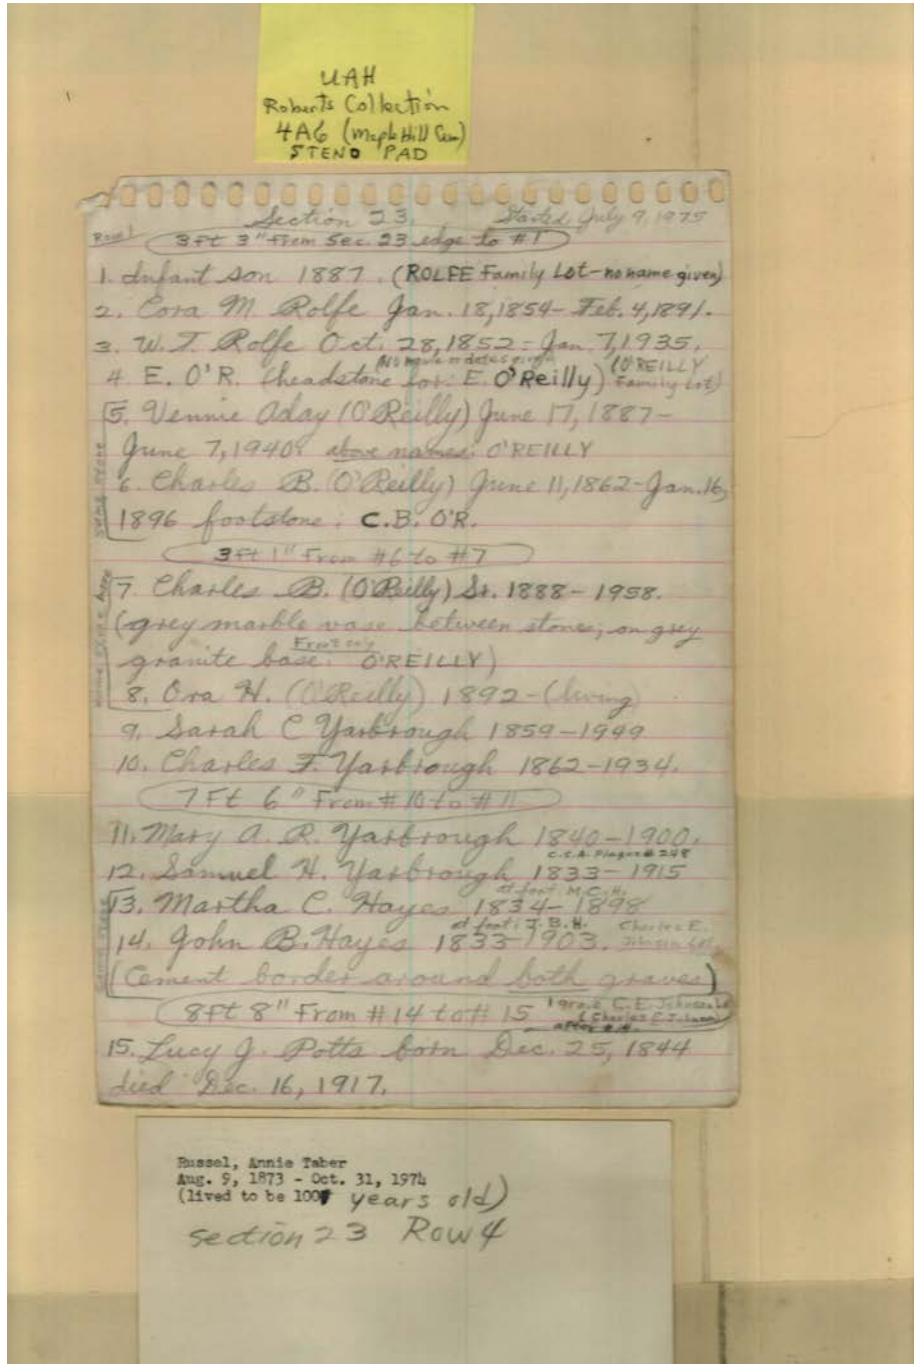 UAH
Roberts Collection
4A6 (Maple Hill Cem)
STENO PAD
Section 23. Started July 9, 1975
Row 1 3 ft 3" From Sec. 23 edge to #1
1. Infant son 1887. (ROLFE Family Lot - no name given)
2. Cora M Rolfe Jan. 18, 1854 - Feb. 4, 1891.
3. W. T. Rolfe Oct. 28, 1852 - Jan. 7, 1935.
(No name or dates given) (O'REILLY
4. E. O'R. (headstone for: E. O'Reilly) Family Lot)
5. Vennie Aday (O'Reilly) June 17, 1887 -
June 7, 1940. above names: O'REILLY
6. Charles B. (O'Reilly) June 11, 1862 - Jan. 16,
1896 footstone: C.B. O'R.
same stone
3 ft 1" From #6 to #7
7. Charles B. (O'Reilly) Sr. 1888 - 1958.
(grey marble vase between stones; on grey
Front only
granite base: O'REILLY)
8. Ora H. (O'Reilly) 1892 - (living)
same
9. Sarah C Yarbrough 1859 - 1949
10. Charles F. Yarbrough 1862 - 1934.
7 Ft 6" From #10 to #11
11. Mary A. R. Yarbrough 1840 - 1900.
C.S.A. Plaque # 248
12. Samuel H. Yarbrough 1833 - 1915
at foot: M.C.H.
13. Martha C. Hayes 1834 - 1898
at foot: J.B.H. Charles E.
14. John B. Hayes 1833 - 1903.
(Cement border around both graves)
same stone
8 ft 8" From #14 to # 15 1 grave C.E. Johnson
(Charles E. Johnson)
after #14
15. Lucy J. Potts born Dec. 25, 1844
died Dec. 16, 1917.
Russel, Annie Taber
Aug. 9, 1873 - Oct. 31, 1974
(lived to be 100 years old)
section 23 Row 4